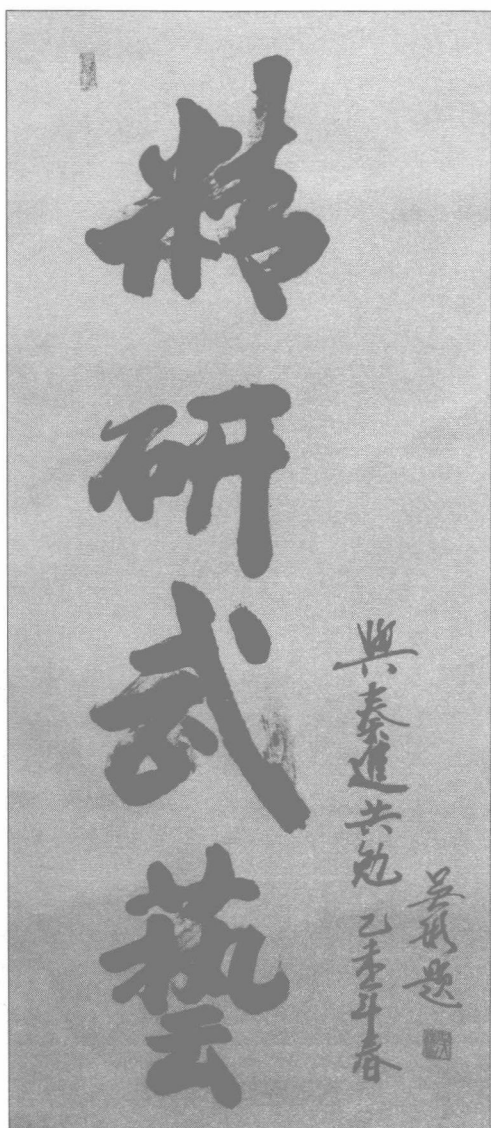 精研武藝
與秦進共勉 乙未年春
吴彬题